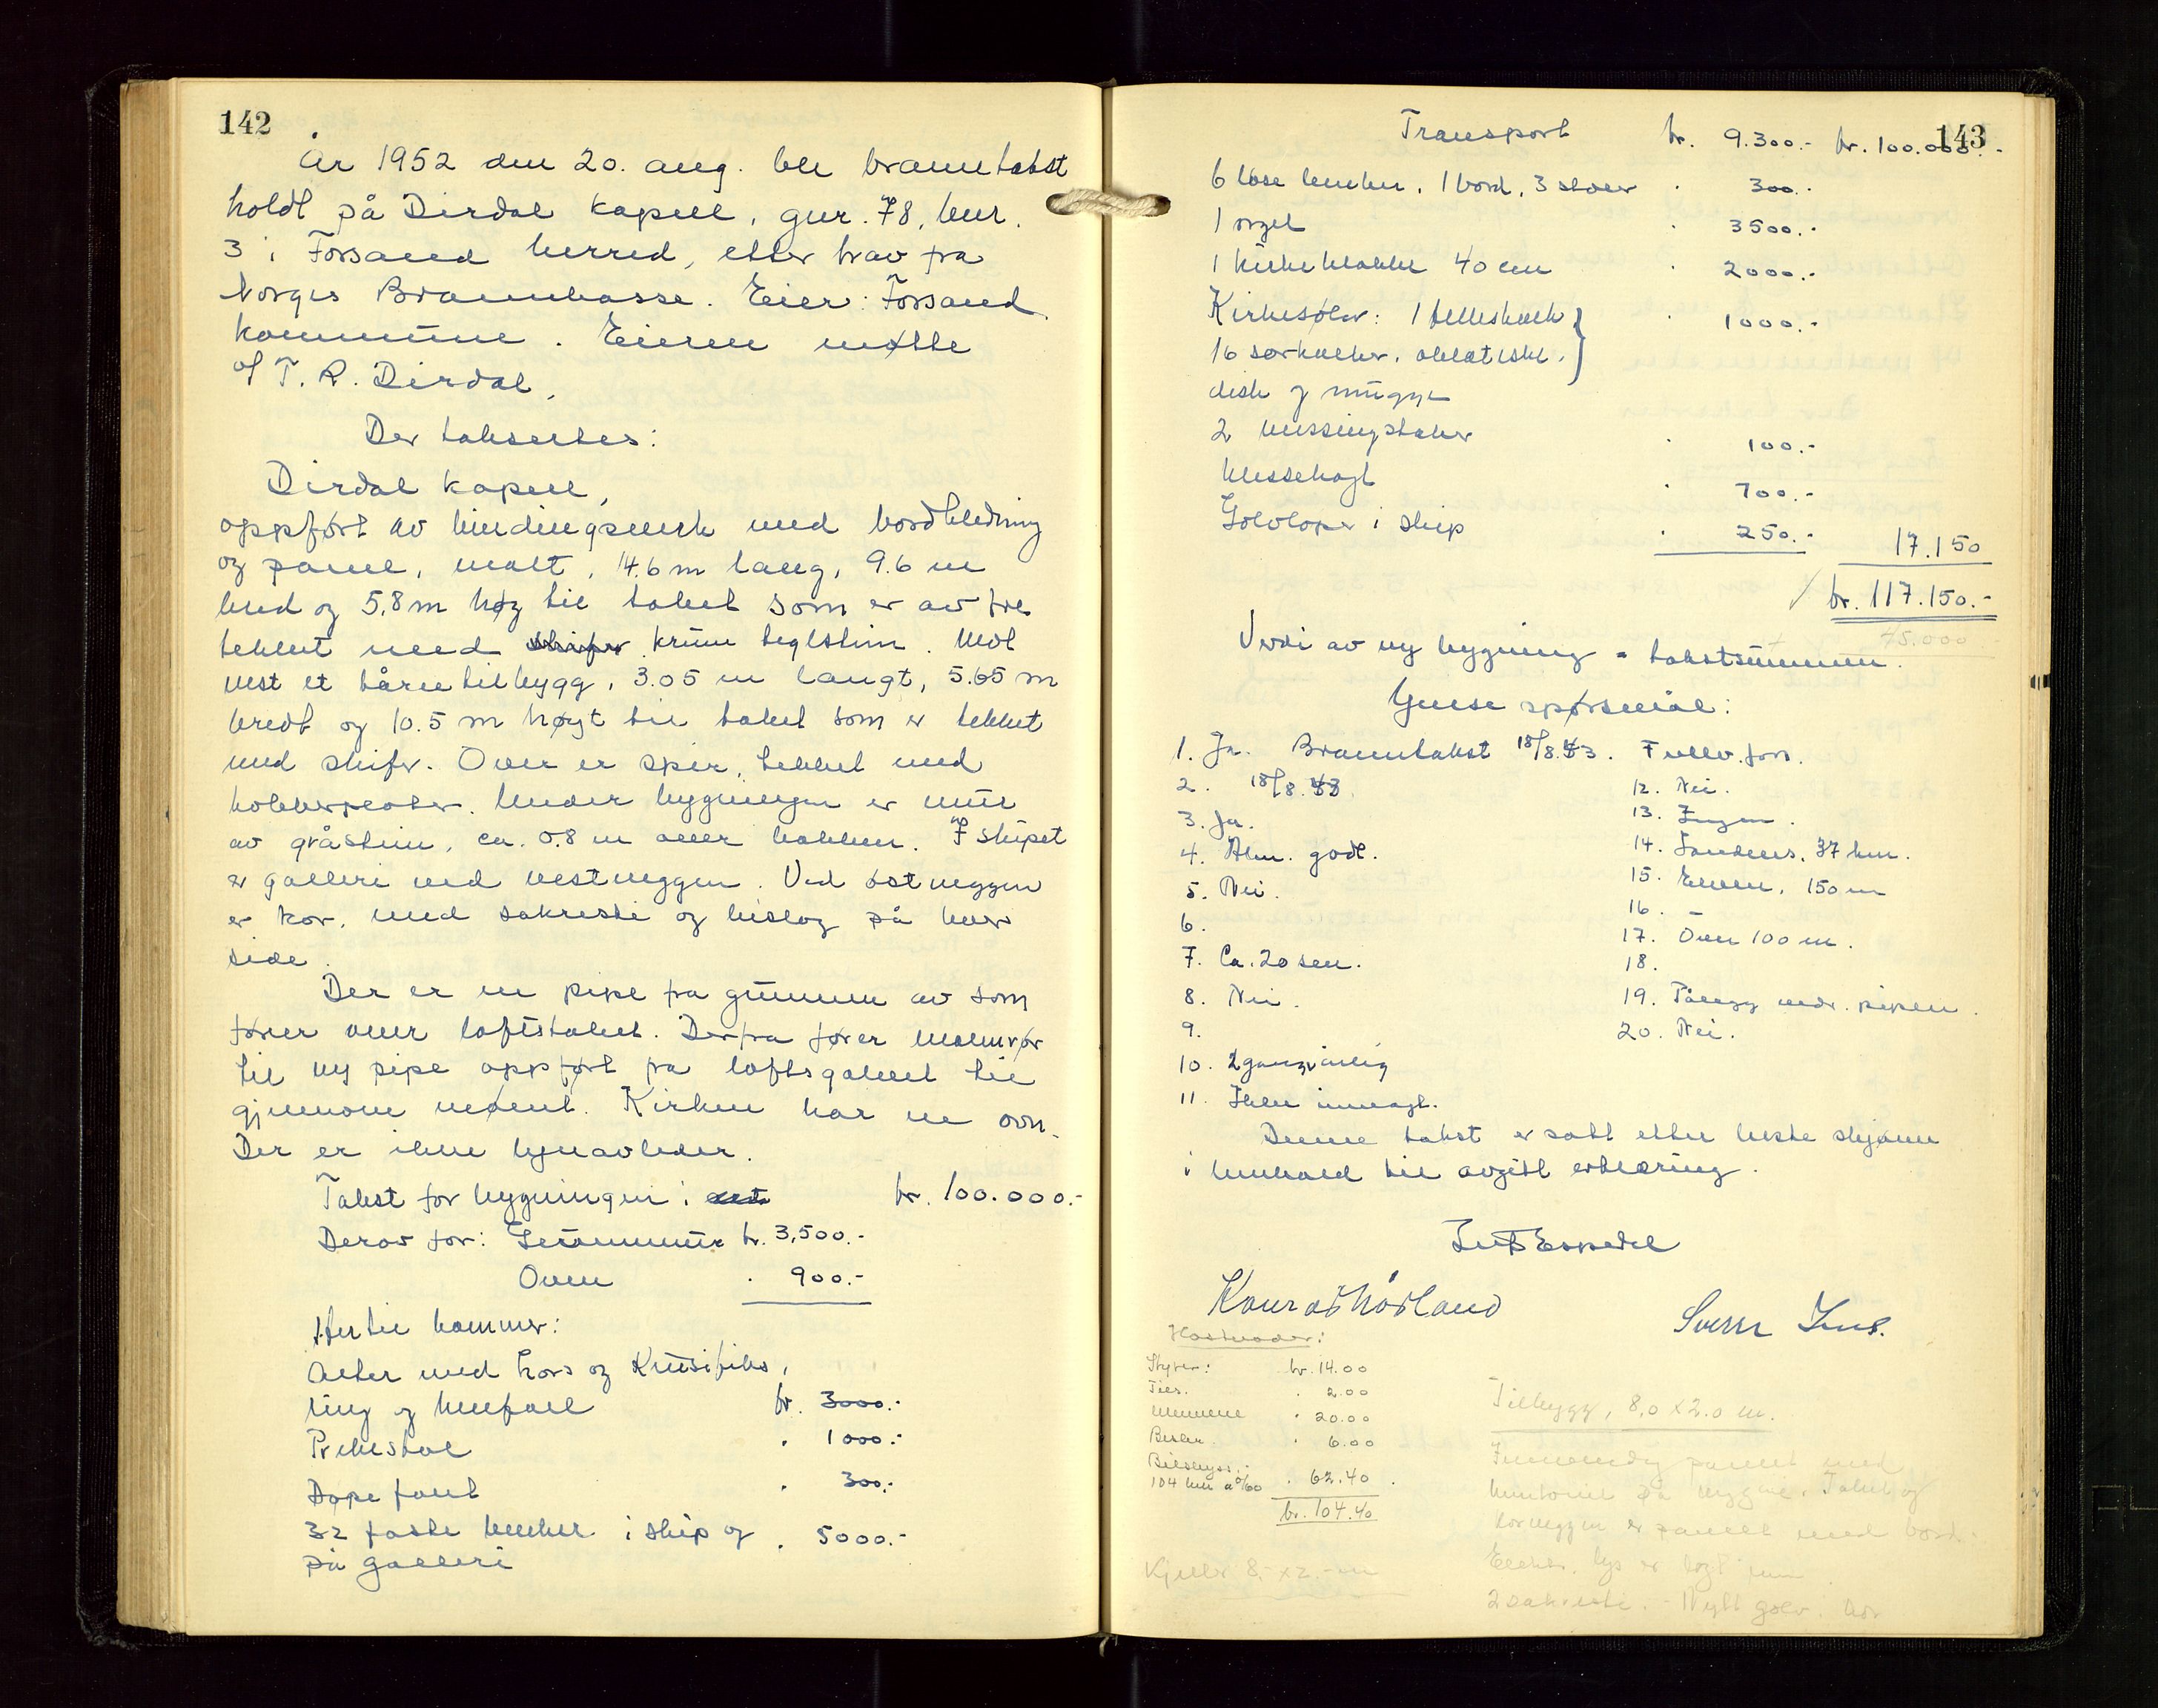 142
År 1952 den 20. aug. ble branntakst
holdt på Dirdal kapell, gnr. 78, bnr.
3 i Forsand herred, etter krav fra
Norges Brannkasse. Eier: Forsand
kommune. Eieren møtte
v/ T. R. Dirdal.
Der taksertes:
Dirdal kapell,
oppført av bindingsverk med bordkledning
og panel, malt, 14.6 m lang, 9.6 m
bred og 5.8 m høg til taket som er av tre
tekket med skifer krum teglstein. Mot
vest et tårntilbygg, 3.05 m langt, 5.65 m
bredt og 10.5 m høgt til taket som er tekket
med skifer. Over er spir, tekket med
kobberplater. Under bygningen er mur
av gråstein, ca. 0.8 m over bakken. I skipet
er galleri ved vestveggen. Ved østveggen
er kor, med sakresti og bislag på hver
side.
Der er en pipe fra grunnen av som
fører over loftstaket. Derfra fører malmrør
til ny pipe oppført fra loftsgolvet til
gjennom mønet. Kirken har en ovn.
Der er ikke lynavleder.
Takst for bygningen: kr. 100.000.-
Derav for: Grunnmur kr. 3,500.-
Ovn " 900.-
Hertil kommer:
Alter med kors og Krusifiks,
ring og knefall kr. 3000.-
Prekestol " 1000.-
Døpefont " 300.-
32 faste benker i skip og " 5000.-
på galleri
143
Transport kr. 9.300.- kr. 100.000.-
6 løse benker, 1 bord, 3 stoler " 300.-
1 orgel " 3500.-
1 kirkeklokke 40 cm " 2000.-
Kirkesølv: 1 felleskalk " 1000.-
16 særkalker, oblateske,
disk og mugge
2 messingstaker " 100.-
Messehagl " 700.-
Golvløper i skip " 250.- 17.150
kr. 117.150.-
75.000
Verdi av ny bygning = takstsummen.
Gense spørsmål:
1. Ja. Branntakst 18/8.43. Fullv. fors.
2. 18/8.43.
3. Ja.
4. Alm. godt.
5. Nei.
6.
7. Ca. 20 sen.
8. Nei.
9.
10. 2 gang årlig
11. Ikke innlagt.
12. Nei.
13. Ingen.
14. Sandnes, 37 km.
15. Elven, 150 m
16. -
17. Over 100 m.
18.
19. Pålegg vedr. pipen.
20. Nei.
Denne takst er satt etter beste skjønn
i henhold til avgitt erklæring.
Espedal
Konrad
Sverre
Kostnader:
Skyver: kr. 14.00
" 2.00
Mennene " 20.00
" 6.00
Bilskyss:
104 km a 0/60 " 62.40
kr. 104.40
Kjeller 8.- x 2.- m
Tilbygg, 8,0 x 2.0 m.
Innvendig panelt med
på veggene. Taket og
korveggen er panelt med bord.
Elektr. lys er lagt inn
2 sakresti. Nytt golv i kor